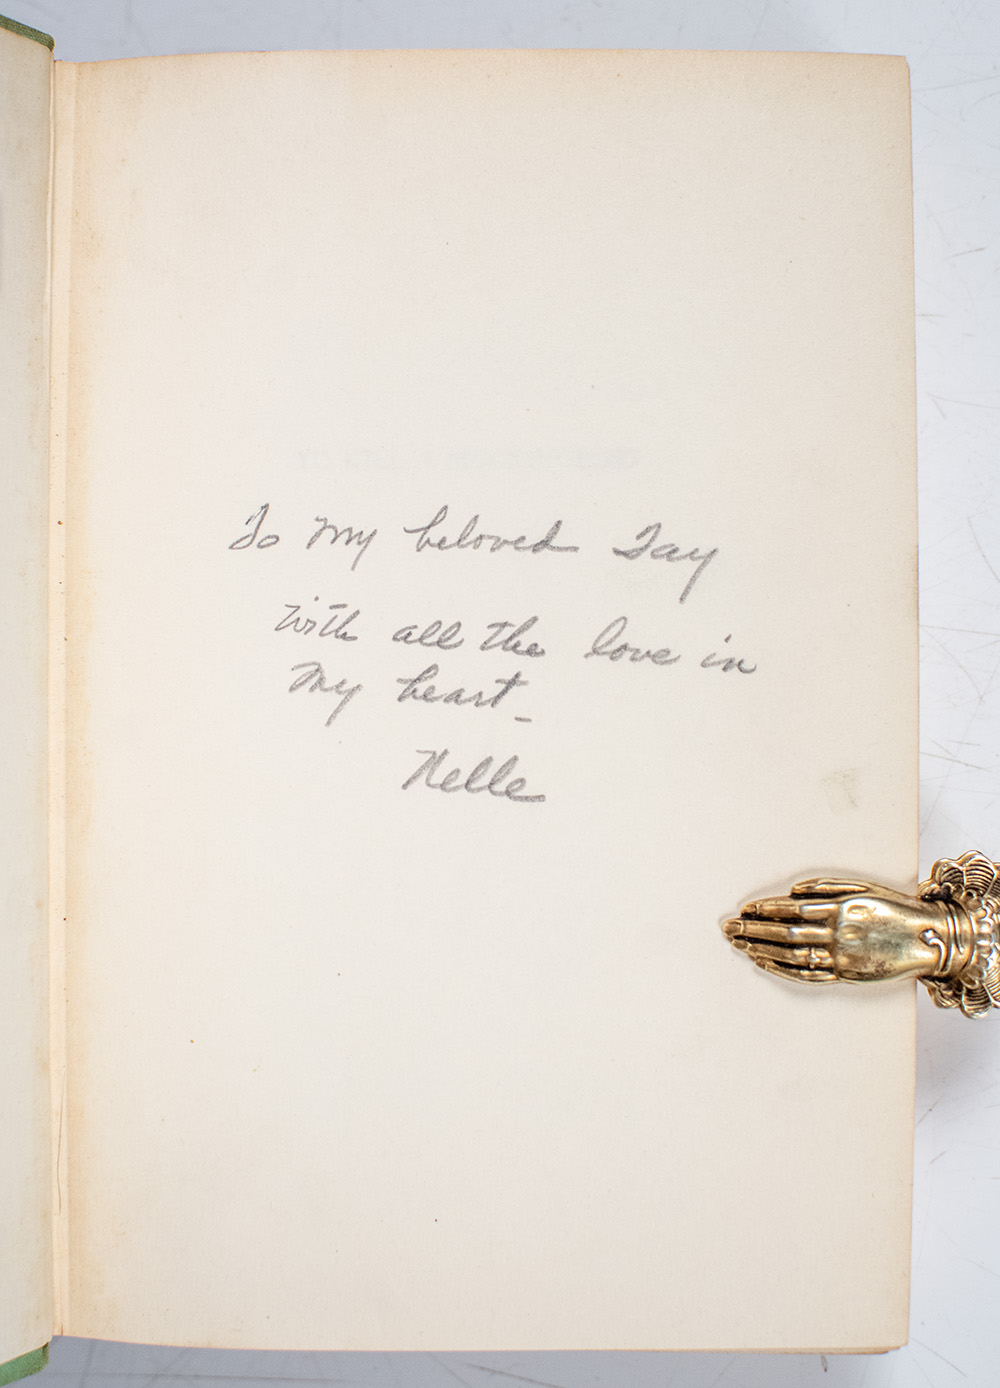 To My beloved Tay
With all the love in
My heart -
Nelle